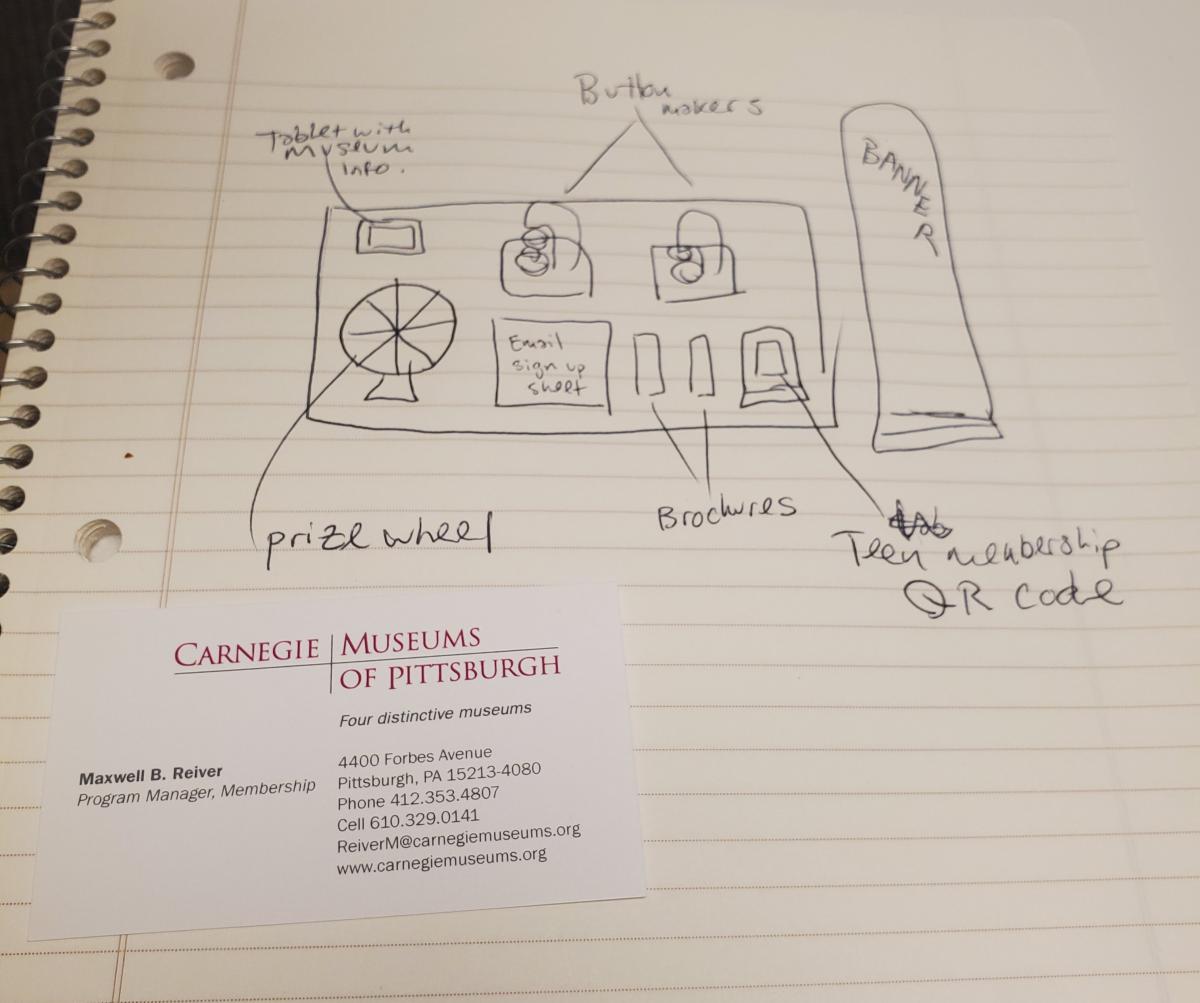 Button
makers
Tablet with
museum
info.
BANNER
Email
sign up
sheet
prize wheel
Brochures
Teen membership
QR code
CARNEGIE MUSEUMS
OF PITTSBURGH
Four distinctive museums
Maxwell B. Reiver
Program Manager, Membership
4400 Forbes Avenue
Pittsburgh, PA 15213-4080
Phone 412.353.4807
Cell 610.329.0141
ReiverM@carnegiemuseums.org
www.carnegiemuseums.org